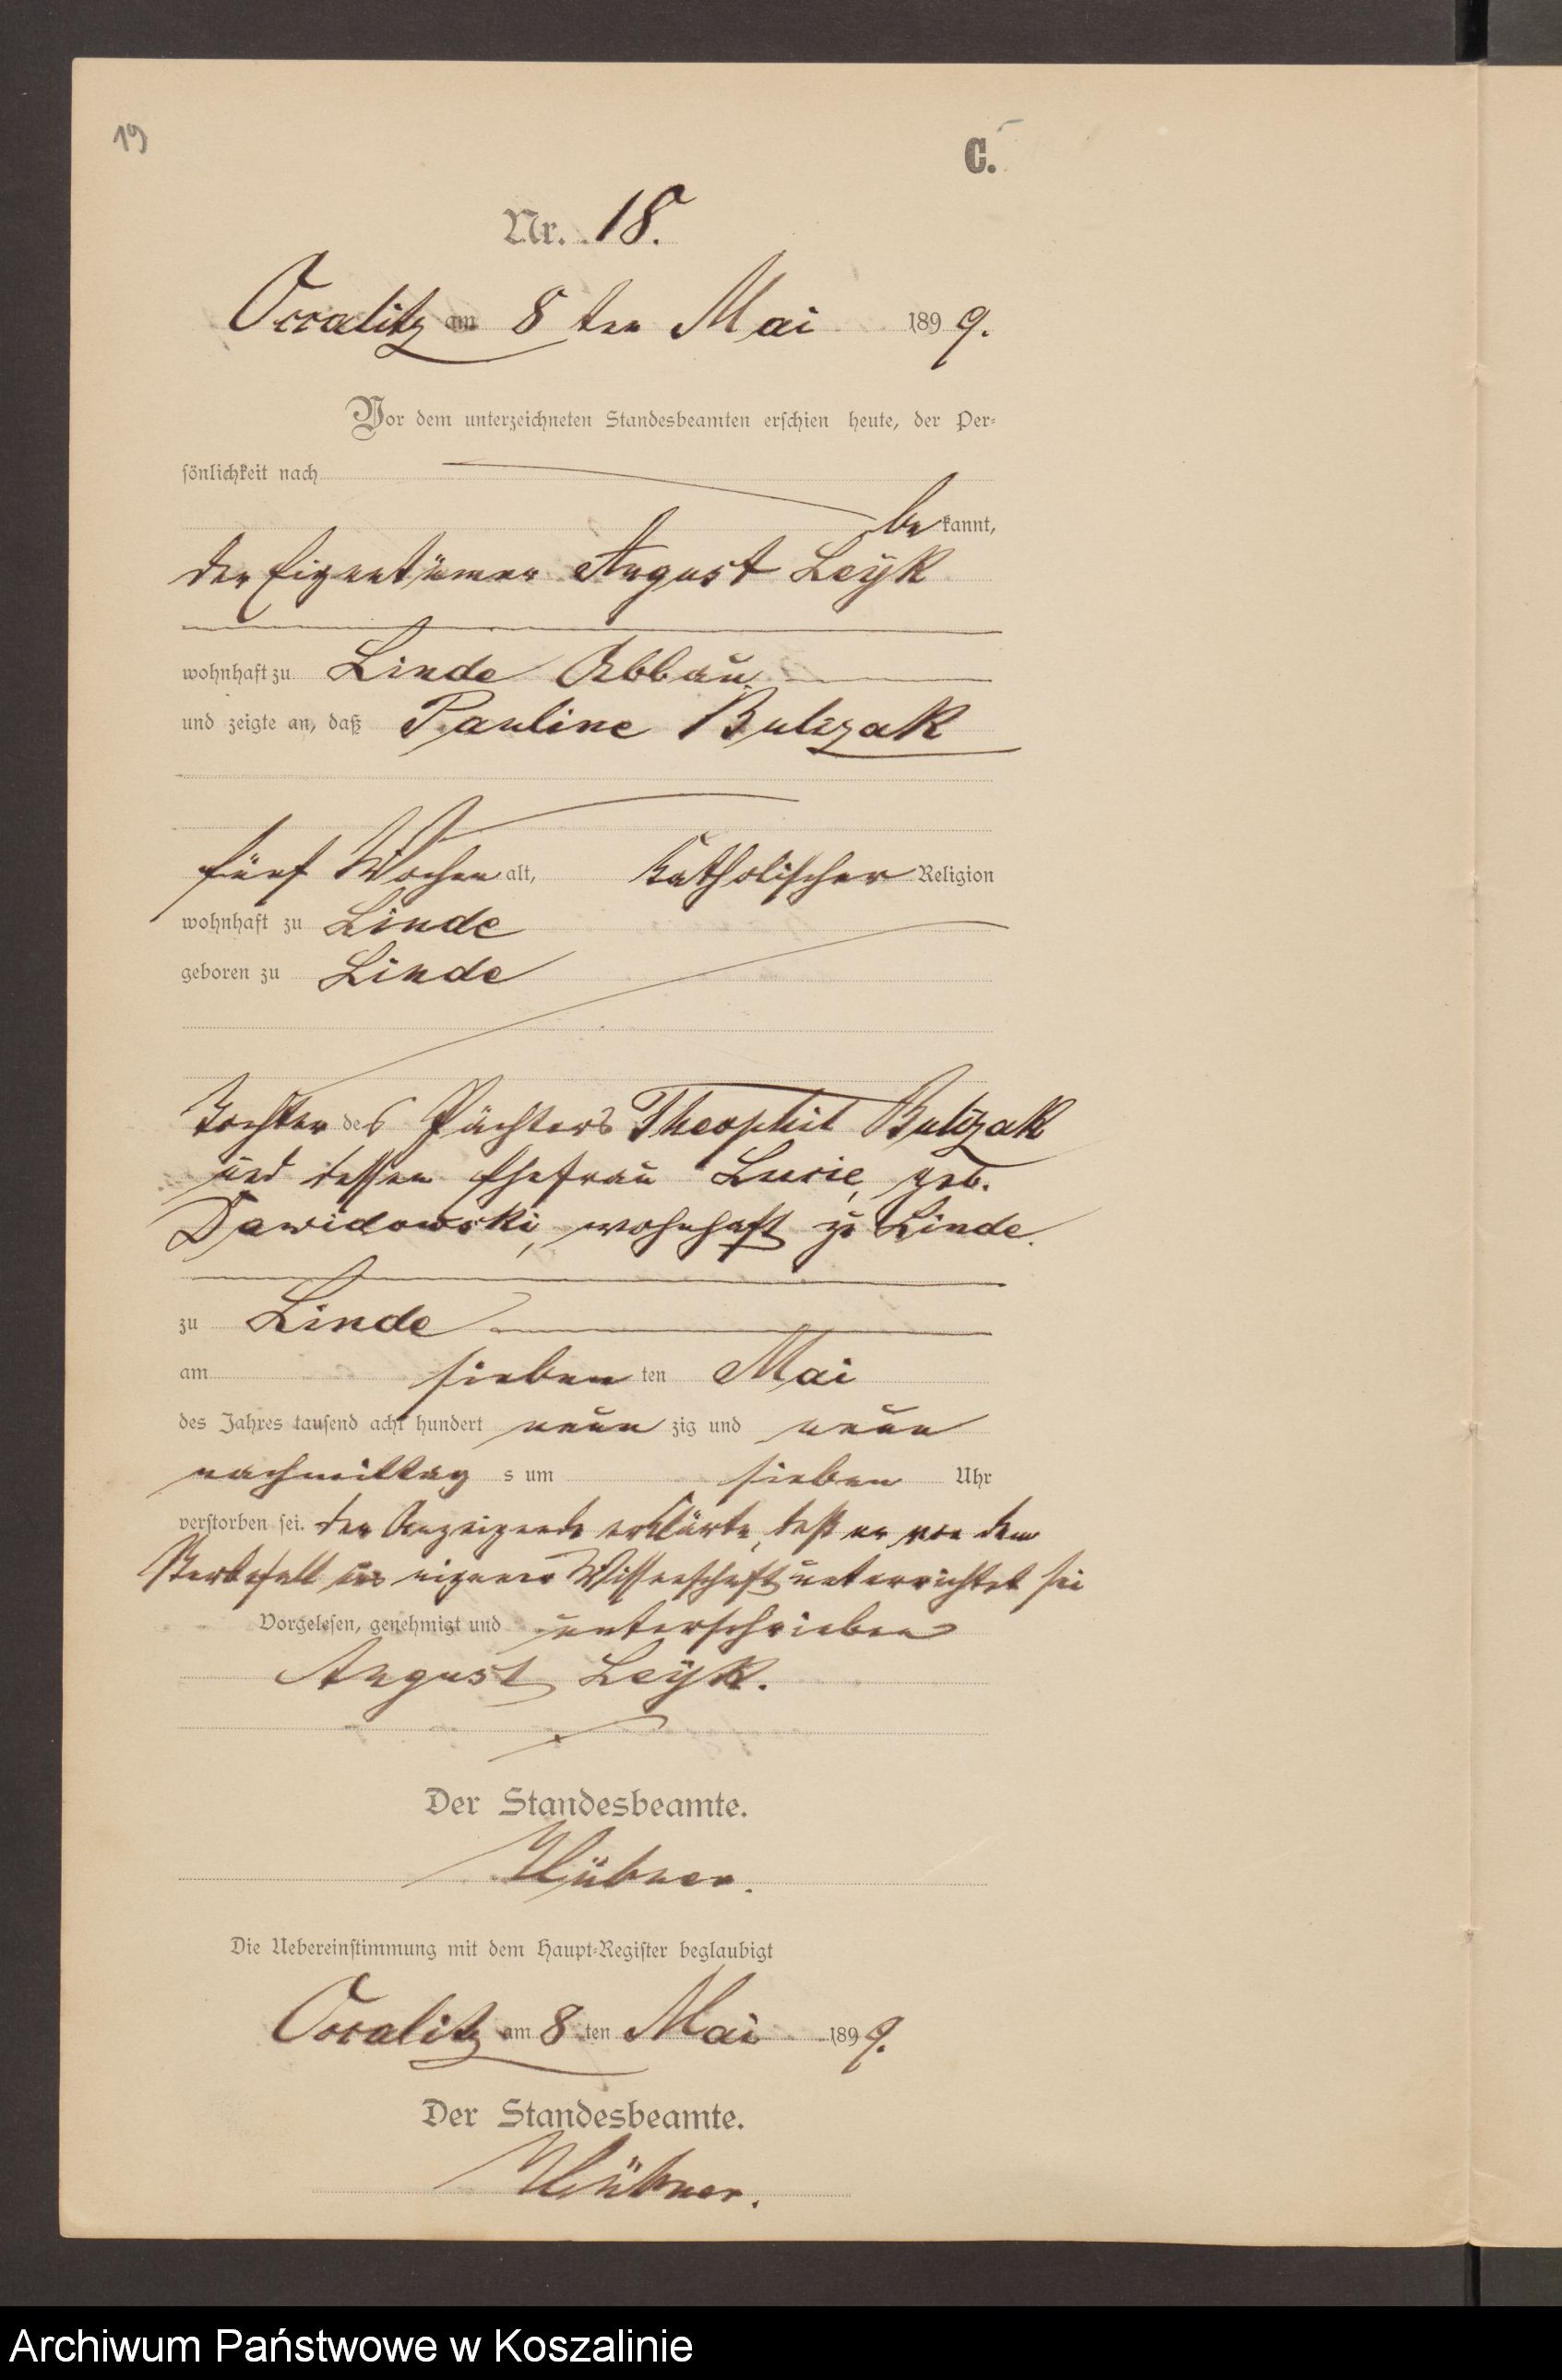 19
C.
Nr. 18.
Occalitz am 8 ten Mai 1899.
Vor dem unterzeichneten Standesbeamten erschien heute, der Per-
sönlichkeit nach
bekannt,
der Eigentümer August Leÿk
wohnhaft zu Linde Abbau
und zeigte an, daß Pauline Bulczak
fünf Wochen alt, katholischer Religion
wohnhaft zu Linde
geboren zu Linde
Tochter des Pächters Theophil Bulczak
und dessen Ehefrau Lucie, geb.
Dawidowski, wohnhaft zu Linde.
zu Linde
am sieben ten Mai
des Jahres tausend acht hundert neun zig und neun
nachmittag s um sieben Uhr
verstorben sei. Der Anzeigende erklärte, daß er von dem
Sterbefall aus eigener Wissenschaft unterrichtet sei
Vorgelesen, genehmigt und unterschrieben
August Leÿk.
Der Standesbeamte.
Hübner.
Die Uebereinstimmung mit dem Haupt-Register beglaubigt
Occalitz am 8 ten Mai 1899.
Der Standesbeamte.
Hübner.
Archiwum Państwowe w Koszalinie